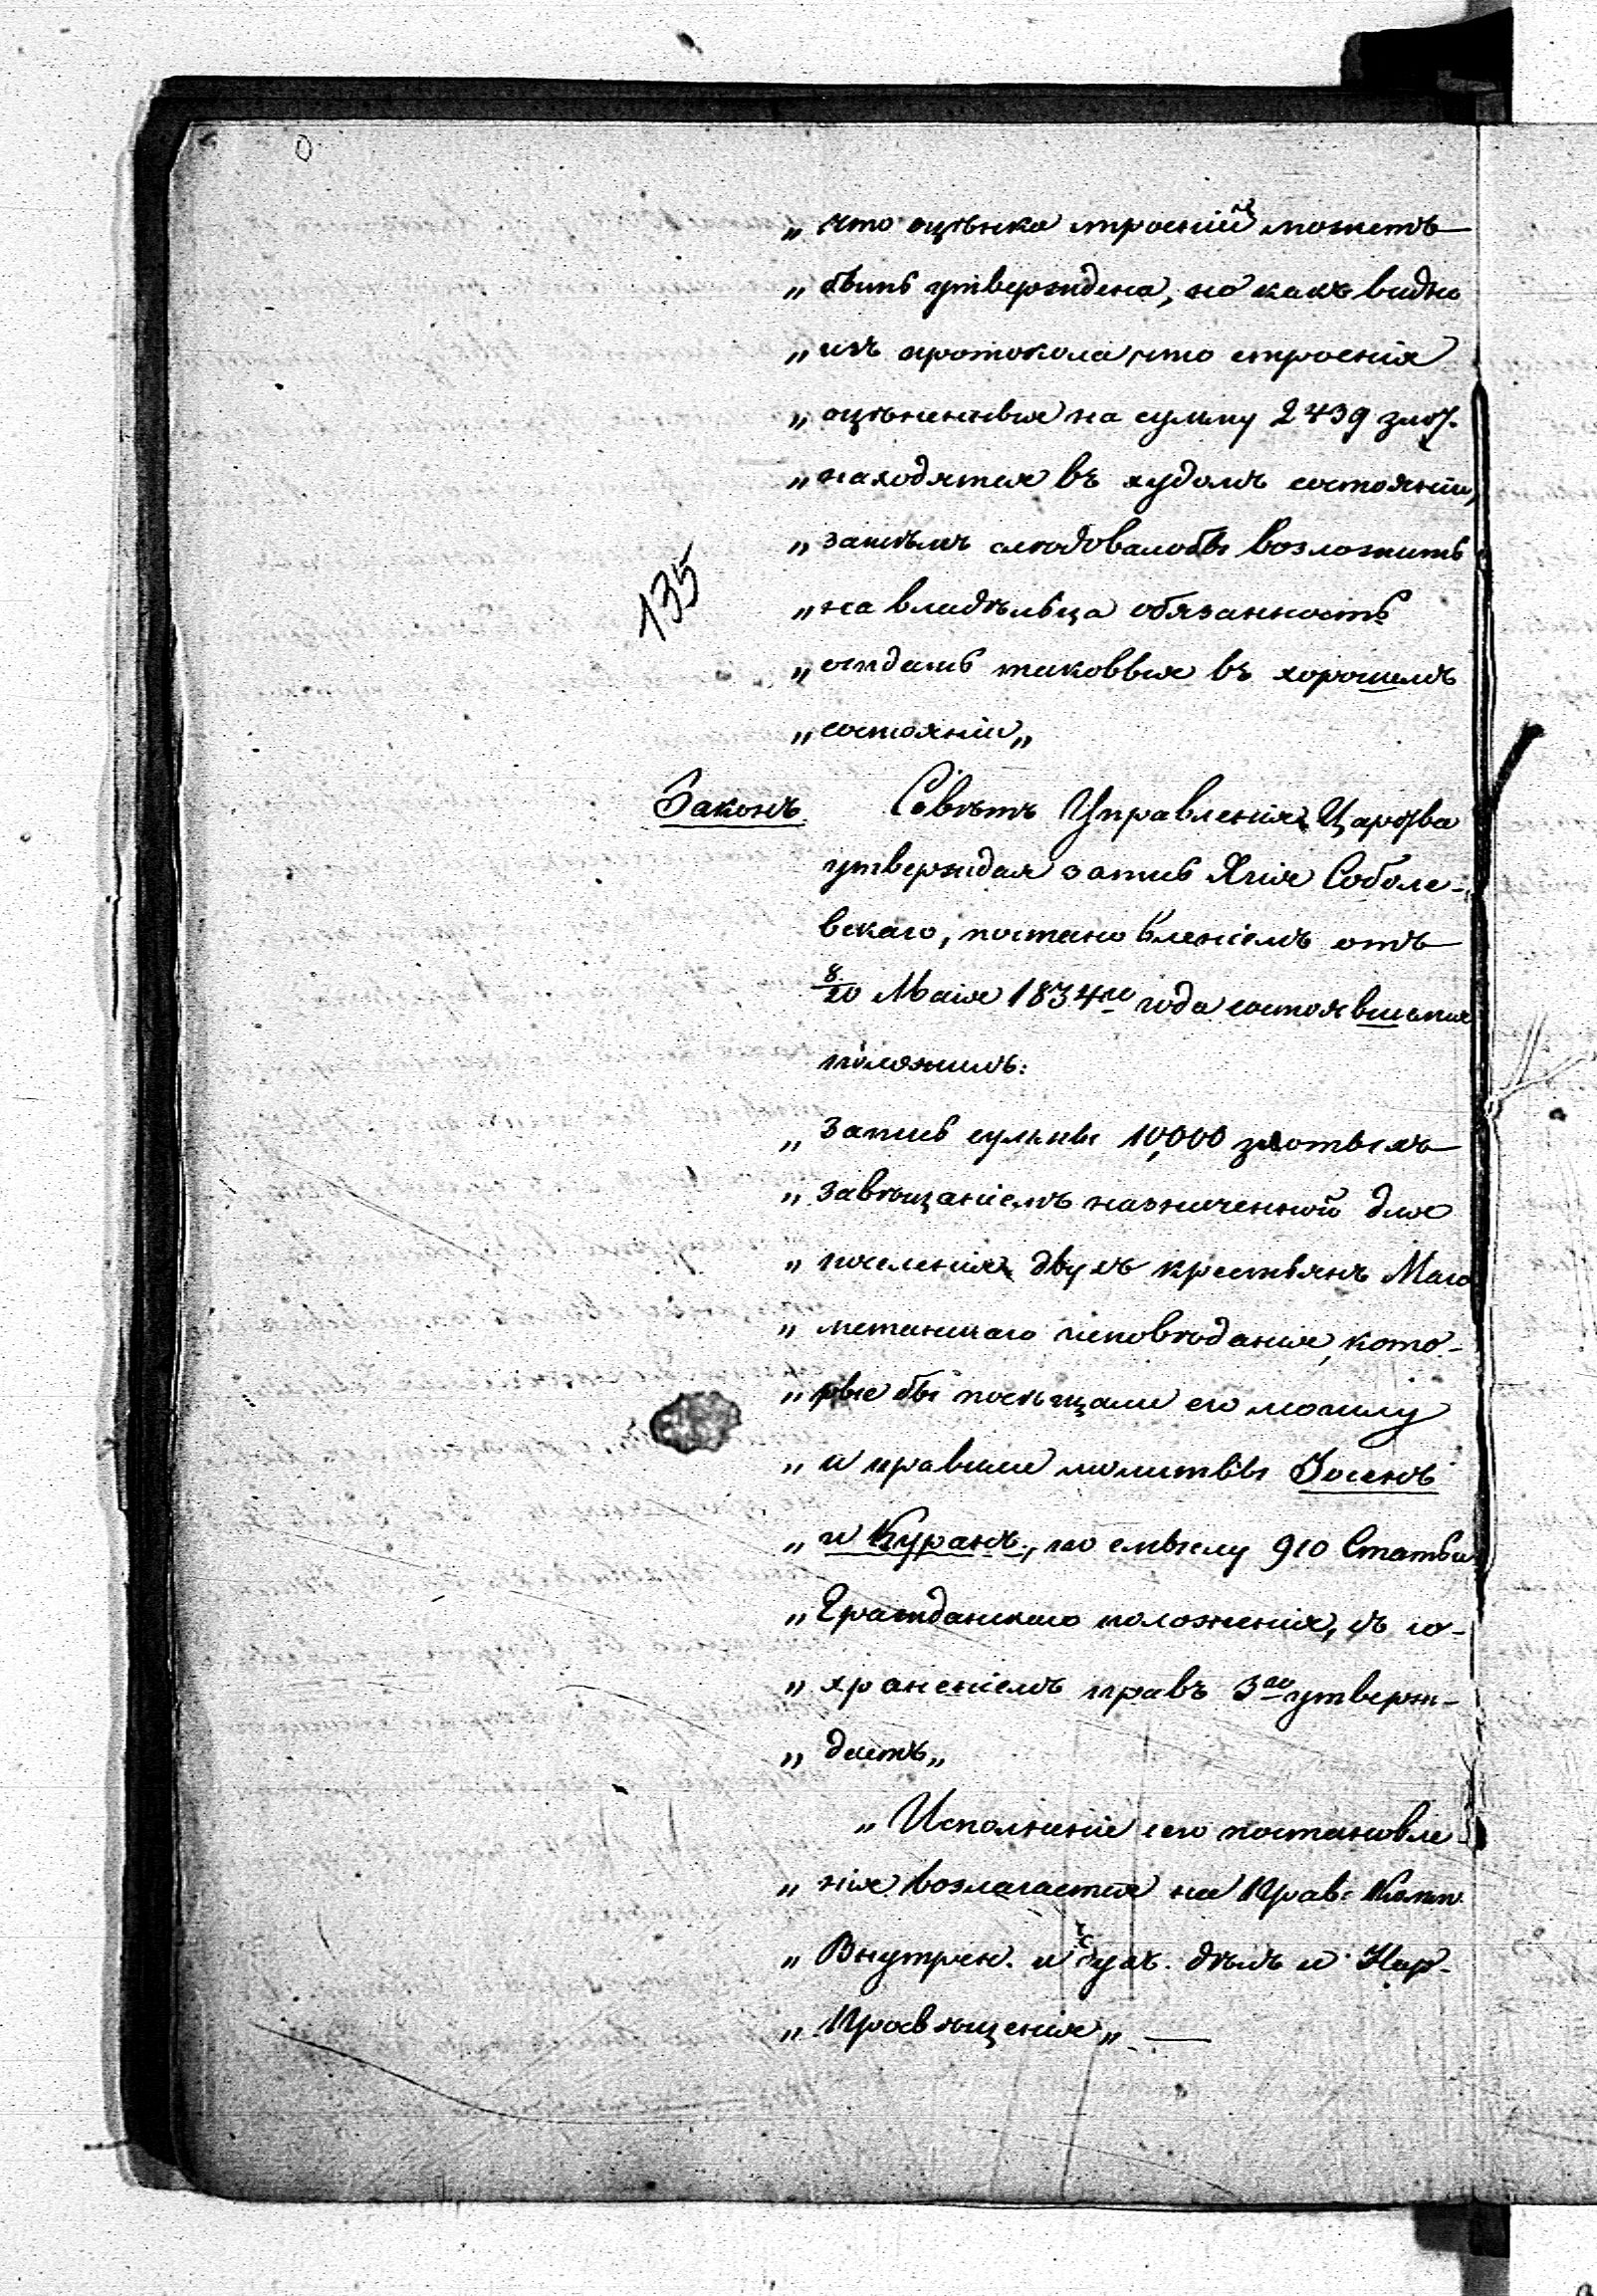 „ что оцѣнка строеній можетъ
„ быть утверждена, но какъ видно
„ изъ протокола, что строенія
„ оцѣненныя на сумму 2439 злот.
„ находятся въ худомъ состояніи,
„ затѣмъ слѣдовалобы возложить
„ на владѣльца обязанность
135
„ отдать таковыя въ хорошемъ
„ состояніи „
Законъ. Совѣтъ Управленія Царства
утверждая запись Яхія Соболе-
вскаго, постановленіемъ отъ
8/20 Маія 1834го года состоявшемся
положилъ:
„ запись суммы 10,000 злотыхъ
„ завѣщаніемъ назначенной для
„ поселенія двухъ крестьянъ Маго
„ метанскаго исповѣданія, кото-
„ рые бы посѣщали его могилу
„ и правили молитвы Iосенъ
„ и Куранъ, по смыслу 910 Статьи
„ Гражданскаго положенія, съ со-
„ храненіемъ правъ 3го утверж-
„ даетъ „
„ Исполненіе сего постановле
„ нія возлагается на Прав: Комм
„ Внутрен. и Дух. дѣлъ и Нар-
„ Просвѣщенія „ —